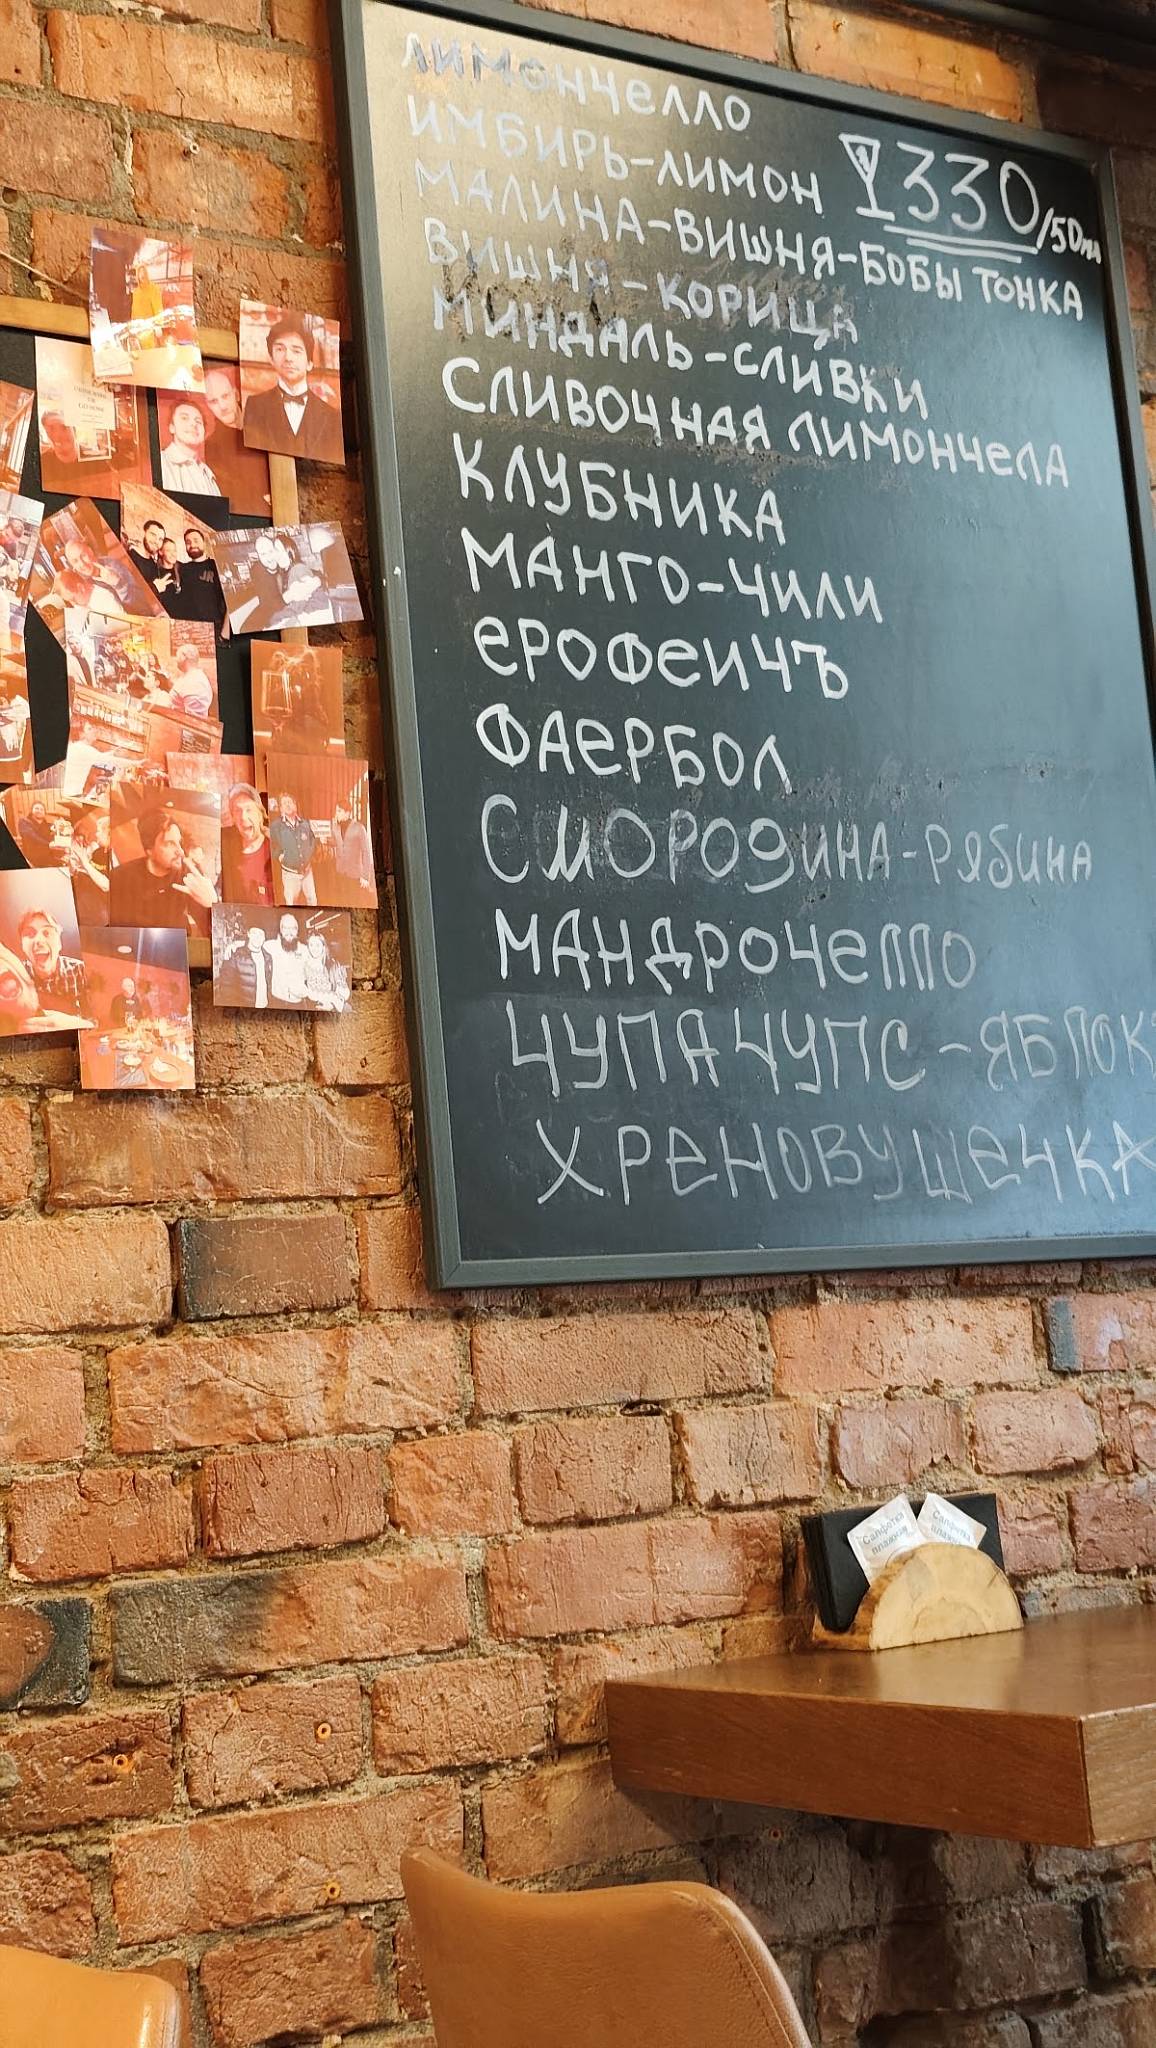 ЛИМОНЧЕЛЛО
ИМБИРЬ-ЛИМОН
330/50мл
МАЛИНА-ВИШНЯ-БОБЫ ТОНКА
ВИШНЯ-КОРИЦА
МИНДАЛЬ-СЛИВКИ
СЛИВОЧНАЯ ЛИМОНЧЕЛА
КЛУБНИКА
МАНГО-ЧИЛИ
ЕРОФЕИЧЪ
ФАЕРБОЛ
СМОРОДИНА-РЯБИНА
МАНДРОЧЕЛЛО
ЧУПА ЧУПС-ЯБЛОК
ХРЕНОВУШЕЧКА
Салфетка
влажная
Салфетка
влажная